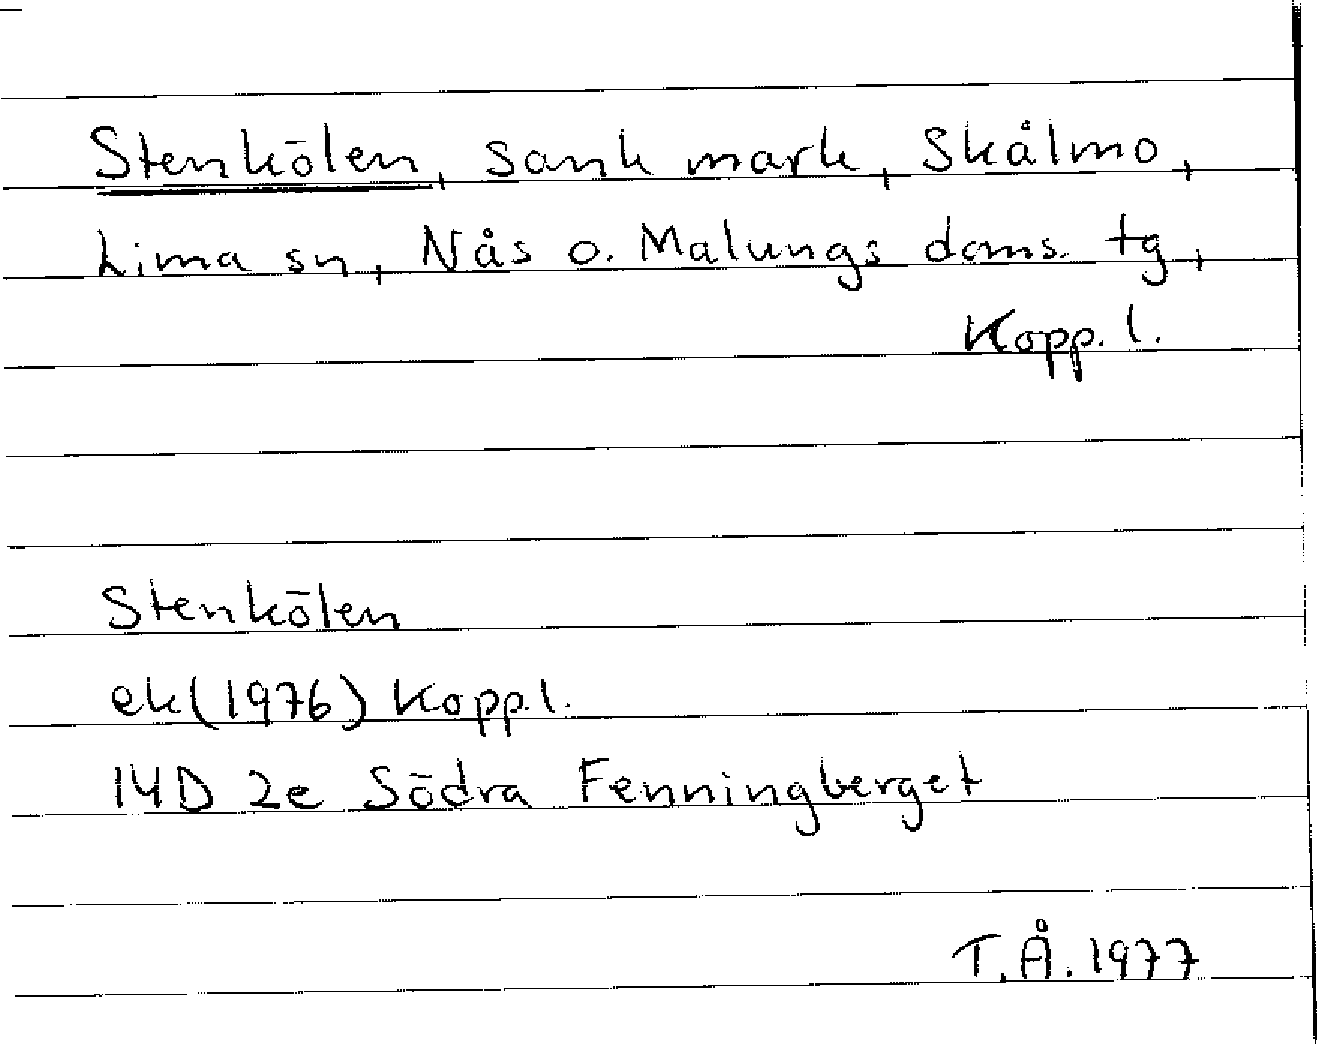 Stenkölen, sank mark, Skålmo,
Lima sn, Nås o. Malungs doms. tg,
Kopp. l.
Stenkölen
ek (1976) Kopp.l.
14D 2e Södra Fenningberget
T.Å. 1977